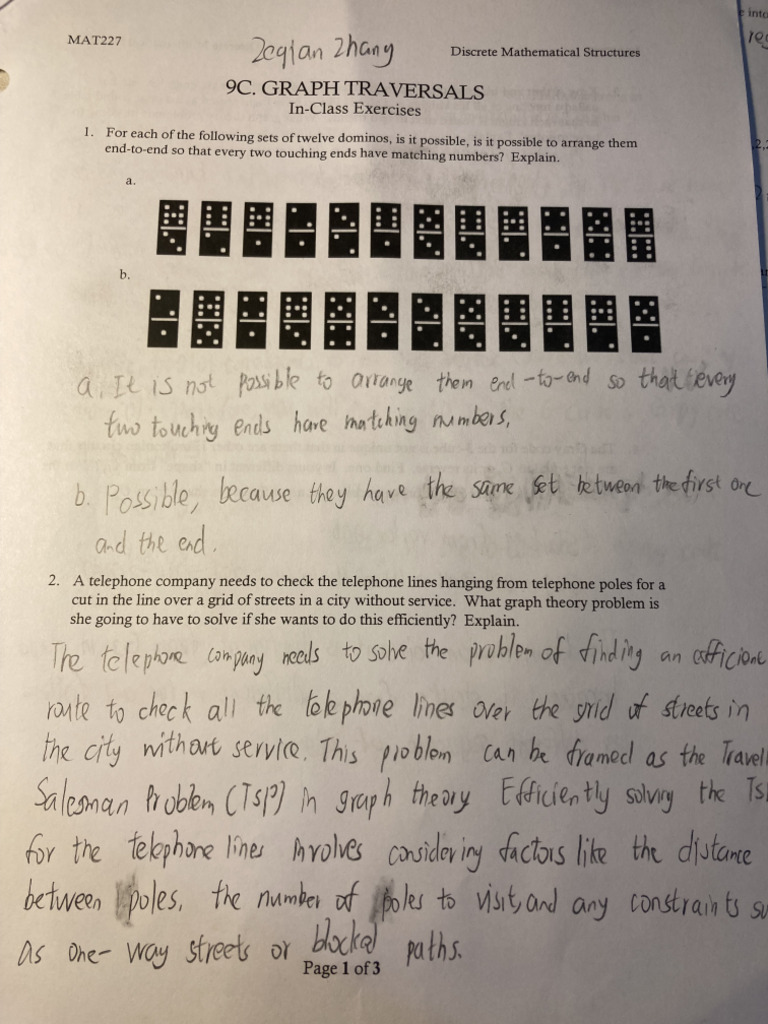 MAT227
Zeqian Zhang
Discrete Mathematical Structures
9C. GRAPH TRAVERSALS
In-Class Exercises
1. For each of the following sets of twelve dominos, is it possible, is it possible to arrange them
end-to-end so that every two touching ends have matching numbers? Explain.
a.
b.
a. It is not possible to arrange them end-to-end so that every
two touching ends have matching numbers,
b. Possible, because they have the same set between the first one
and the end.
2. A telephone company needs to check the telephone lines hanging from telephone poles for a
cut in the line over a grid of streets in a city without service. What graph theory problem is
she going to have to solve if she wants to do this efficiently? Explain.
The telephone company needs to solve the problem of finding an efficient
route to check all the telephone lines over the grid of streets in
the city without service. This problem can be framed as the Travell
Salesman Problem (TSP) in graph theory Efficiently solving the TS
for the telephone lines involves considering factors like the distance
between poles, the number of poles to visit, and any constraints su
as one-way streets or blocked paths.
Page 1 of 3